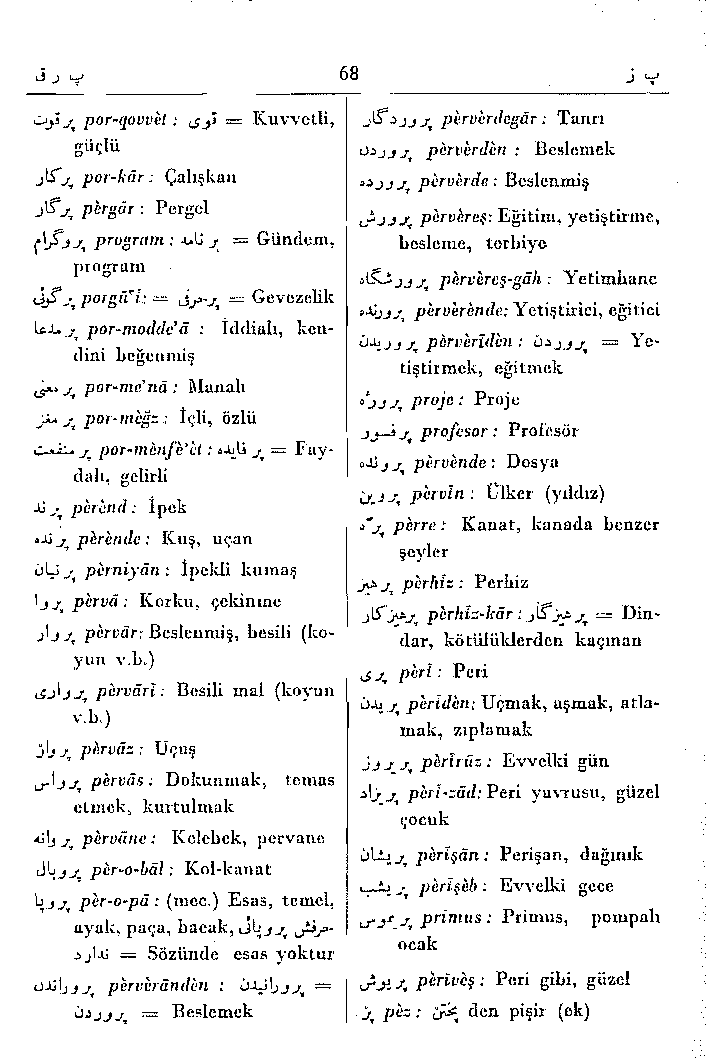 پ ر ق 68 پ ز
پرقوت por-qovvèt : قوی = Kuvvetli,
güçlü
پرکار por-kâr : Çalışkan
پرگار pèrgâr : Pergel
پروگرام program : بر نامه = Gündem,
program
پرگوئی porgû'î : = پر حرفی = Gevezelik
پر مدعا por-modde'â : İddialı, ken-
dini beğenmiş
پر معنی por-me'nâ : Manalı
پر مغز por-mèğz : İçli, özlü
پر منفعت por-mènfè'èt : پر فایده = Fay-
dalı, gelirli
پرند pèrènd : İpek
پرنده pèrènde : Kuş, uçan
پرنیان pèrniyân : İpekli kumaş
پروا pèrvâ : Korku, çekinme
پروار pèrvâr : Beslenmiş, besili (ko-
yun v.b.)
پرواری pèrvârî : Besili mal (koyun
v.b.)
پرواز pèrvâz : Uçuş
پرواس pèrvâs : Dokunmak, temas
etmek, kurtulmak
پروانه pèrvâne : Kelebek, pervane
پروبال pèr-o-bâl : Kol-kanat
پروپا pèr-o-pâ : (mec.) Esas, temel,
ayak, paça, bacak, حرفش پروپائی
ندارد = Sözünde esas yoktur
پروراندن pèrverândèn : پرورانیدن =
پروردن = Beslemek
پروردگار pèrvèrdegâr : Tanrı
پروردن pèrvèrdèn : Beslemek
پرورده pèrvèrde : Beslenmiş
پرورش pèrvèreş : Eğitim, yetiştirme,
besleme, terbiye
پرورشگاه pèrvèreş-gâh : Yetimhane
پرورنده pèrverènde : Yetiştirici, eğitici
پروریدن pèrvèrîdèn : پروردن = Ye-
tiştirmek, eğitmek
پروژه proje : Proje
پرفسور profesor : Profesör
پرونده pèrvènde : Dosya
پروین pèrvîn : Ülker (yıldız)
پرّه pèrre : Kanat, kanada benzer
şeyler
پرهیز pèrhîz : Perhiz
پرهیزکار pèrhîz-kâr : پرهیزگار = Din-
dar, kötülüklerden kaçınan
پری pèrî : Peri
پریدن pèrîdèn : Uçmak, aşmak, atla-
mak, zıplamak
پریروز pèrîrûz : Evvelki gün
پریزاد pèrî-zâd : Peri yavrusu, güzel
çocuk
پریشان pèrîşân : Perişan, dağınık
پریشب pèrîşèb : Evvelki gece
پریموس primus : Primus, pompalı
ocak
پریوش pèrîveş : Peri gibi, güzel
پز pèz : پختن den pişir (ek)